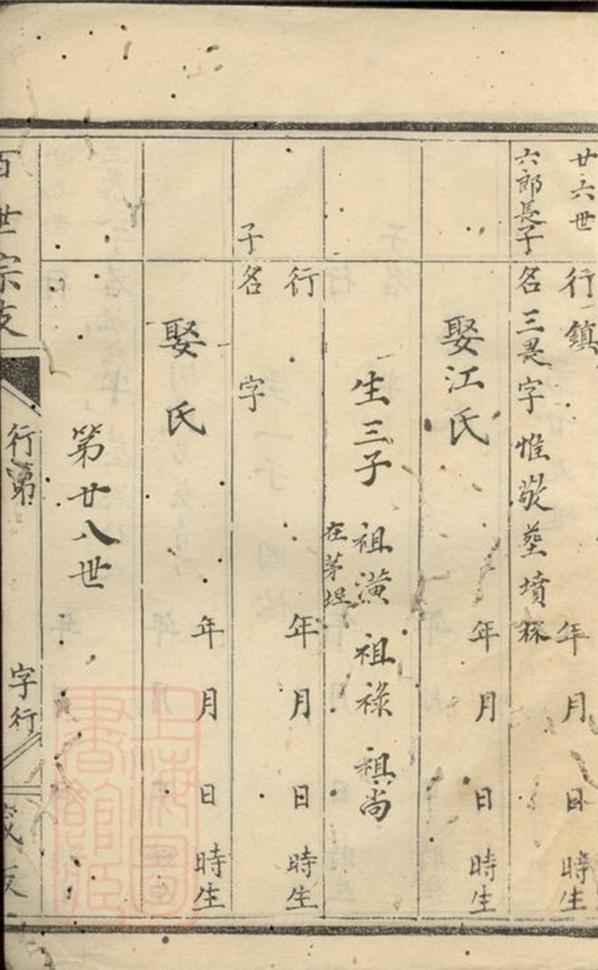 廿六世 行鎮 年月日時生
六郎長子 名三畏字惟敬塟墳林
娶江氏 年月日時生
生三子 祖潢 祖祿 祖尚
在茅埕
行 年月日時生
子 名 字
娶 氏 年月日時生
第廿八世
百世宗支 行第 字行
上海圖書館藏